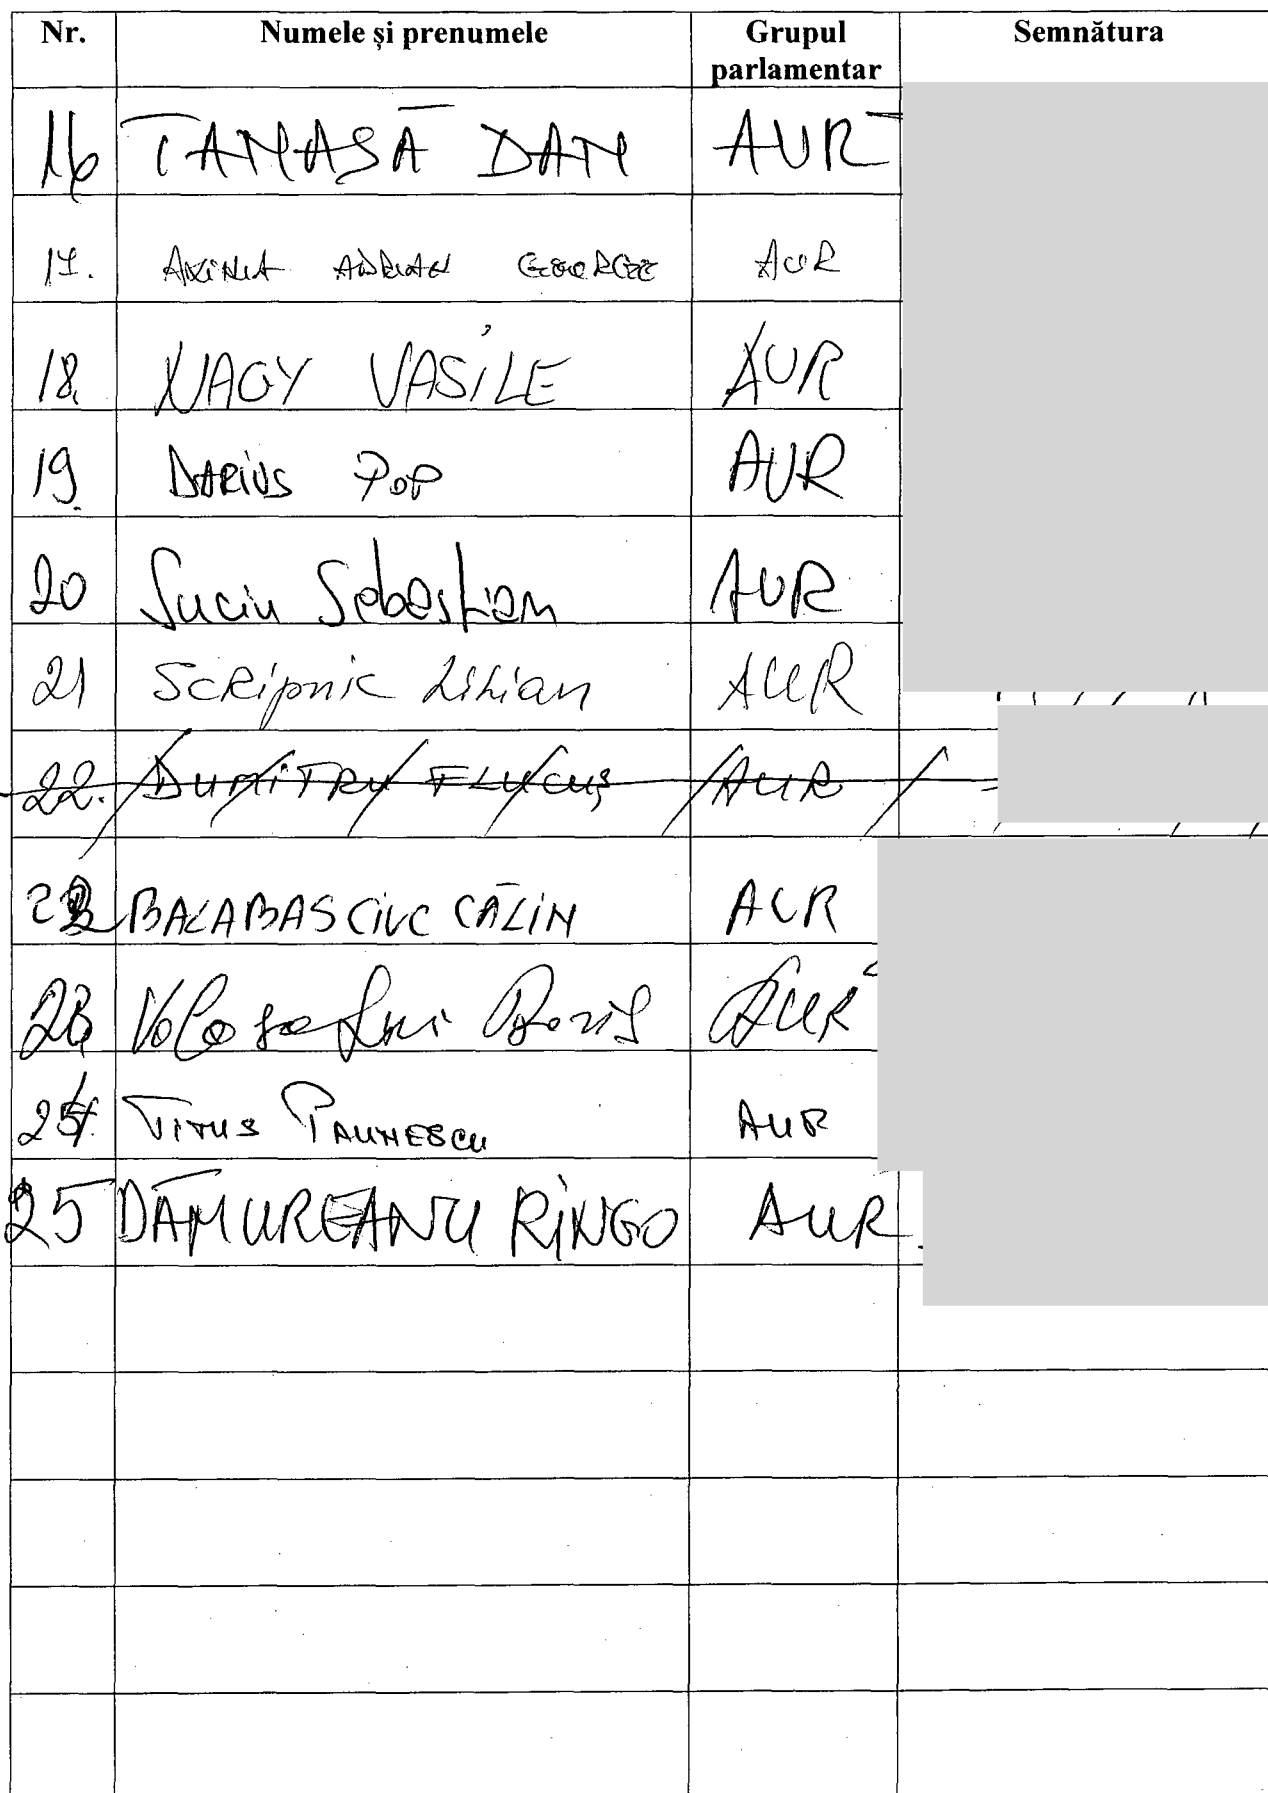 Nr. Numele și prenumele Grupul parlamentar Semnătura
16 TANASĂ DAN AUR
17. AXINIA ADRIAN GEORGE AUR
18. NAGY VASILE AUR
19. DARIUS POP AUR
20 Suciu Sebastian AUR
21 SCRipnic Lilian AUR
22. DUMITRU FLUCUȘ AUR
22 BALABASCIUC CĂLIN AUR
23 Volosatîi Boris AUR
24. TITUS PAUNESCU AUR
25 DĂMUREANU RINGO AUR